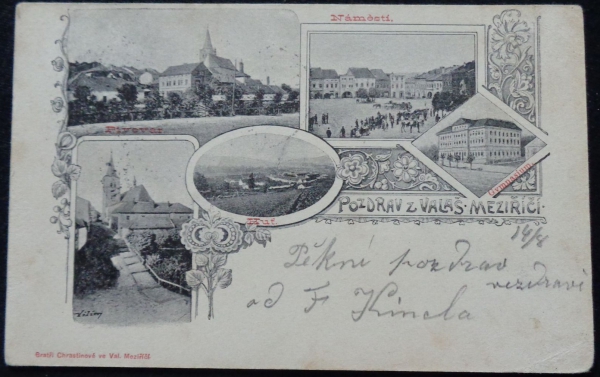 Náměstí.
Pivovar
Gymnasium
Huť.
POZDRAV Z VALAŠ. MEZIŘÍČÍ.
14/8
Pěkní pozdrav
od F Kincla
Bratři Chrastinové ve Val. Meziříčí